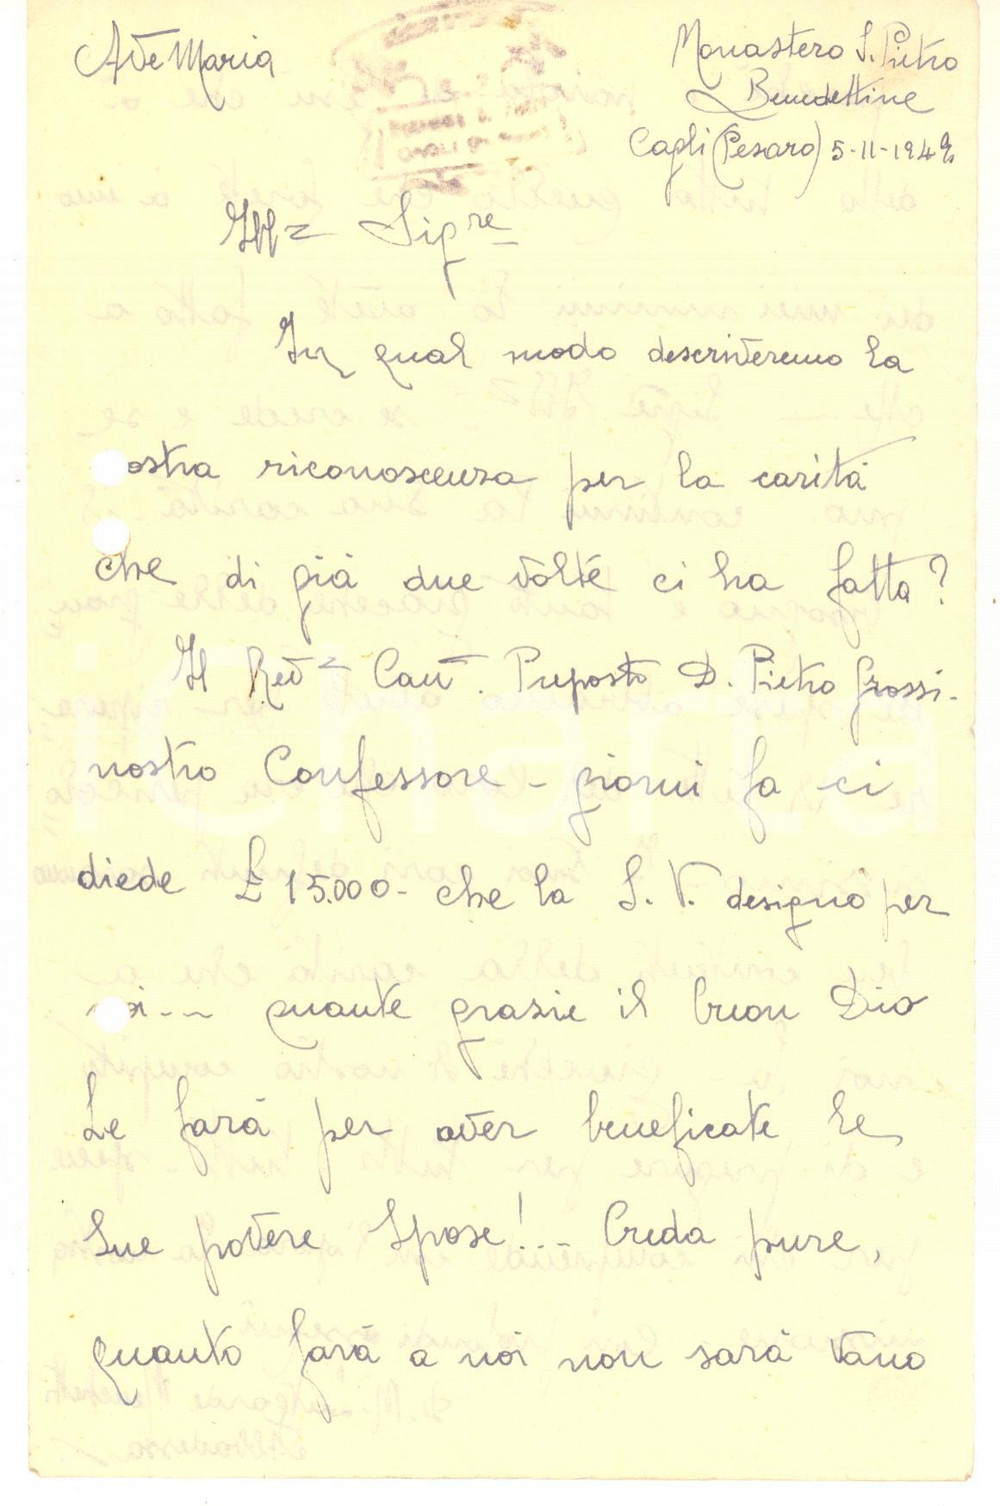 Ave Maria
Monastero S. Pietro
Benedettine
Cagli (Pesaro) 5-11-1949
Ill= Sigre
In qual modo descriveremo la
ostra riconoscenza per la carità
che di già due volte ci ha fatta?
Il Rev= Can. Preposto D. Pietro Grossi -
nostro Confessore - giorni fa ci
diede £ 15.000 - che la S. V. designò per
oi... quante grazie il buon Dio
Le farà per aver beneficate le
Sue povere Spose!... Creda pure,
quanto farà a noi non sarà vano